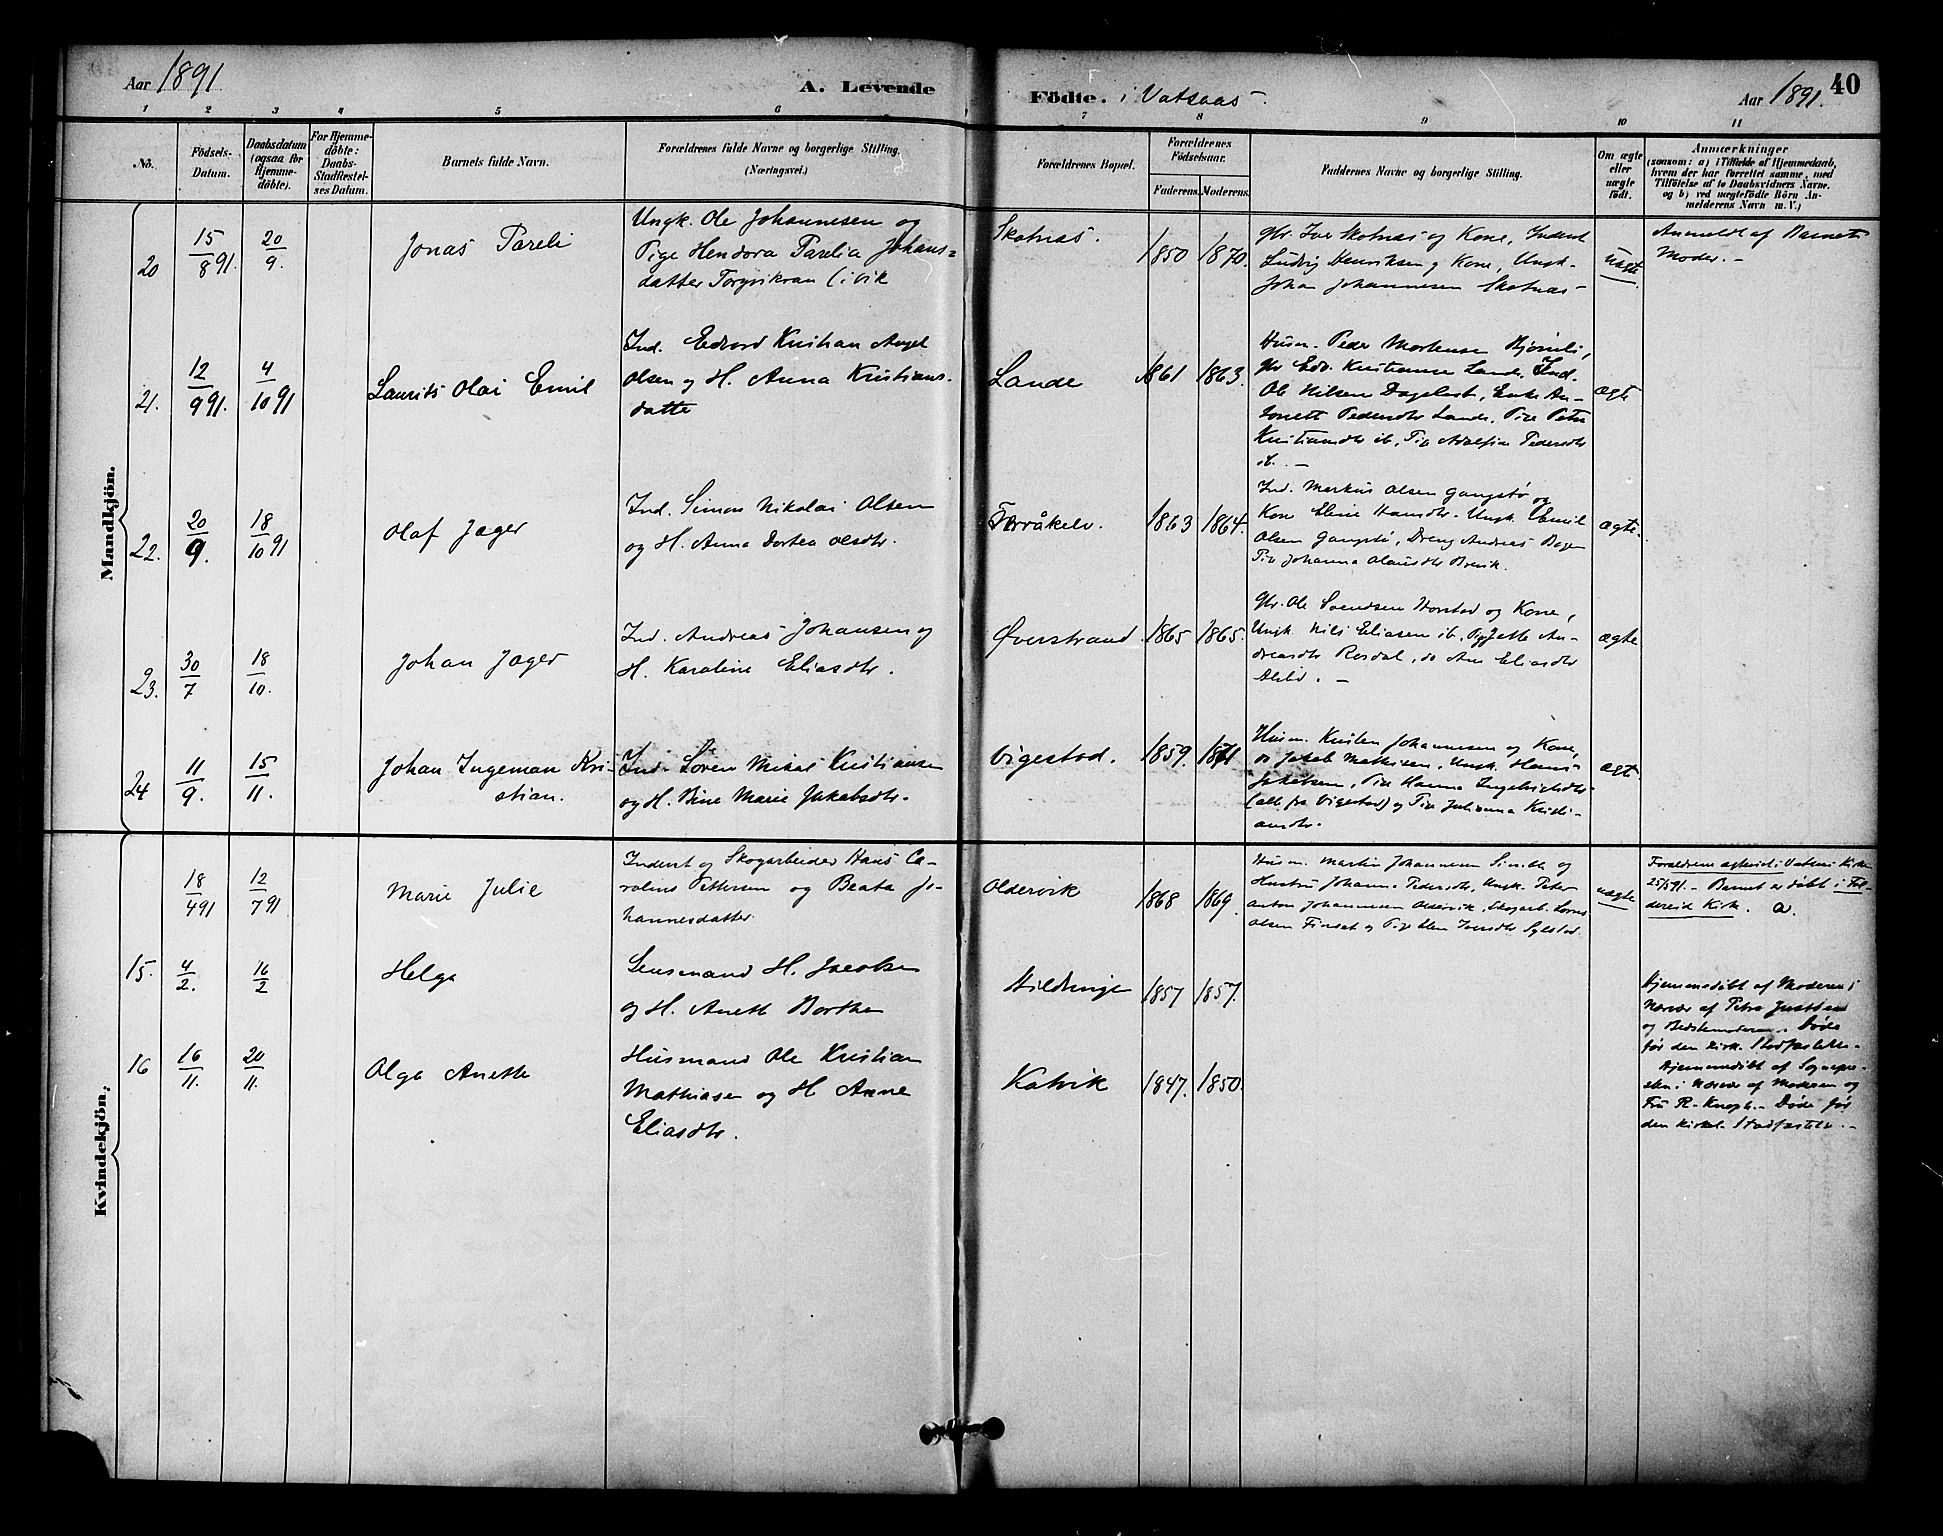 Aar 1891
A. Levende
Födte. i Vatsaas
Aar 1891. 40
1 2 3 4 5 6 7 8 9 10 11
No.
Födsels-
Datum.
Daabsdatum
(ogsaa for
Hjemme-
döbte).
For Hjemme-
döbte:
Daabs-
Stadfæstel-
ses Datum.
Barnets fulde Navn.
Forældrenes fulde Navne og borgerlige Stilling.
(Næringsvei.)
Forældrenes Bopæl.
Forældrenes
Födselsaar.
Faderens. Moderens.
Faddernes Navne og borgerlige Stilling.
Om ægte
eller
uægte
födt.
Anmærkninger
(saasom: a) i Tilfælde af Hjemmedaab,
hvem der har forrettet samme, med
Tilföielse af to Daabsvidners Navne.
og b) ved uægtefödte Börn An-
melderens Navn m. V.)
Mandkjön.
20 15/8 91. 20/9. Jonas Pareli
Ungk. Ole Johannesen og
Pige Hendora Parelia Johans-
datter
Skotnæs. 1850 1870.
Gbr. Iver Skotnæs og Kone, Inderst
Ludvig Henriksen og Kone, Ungk.
Johan Johannesen Skotnæs -
uægte.
Anmeldt af Barnets
Moder. -
21. 12/9 91. 4/10 91 Laurits Olai Emil
Ind. Edvard Kristian Angel
Olsen og H. Anna Kristians-
datte
Lande 1861 1863.
Husm. Peder Mortensen
Gbr Edv. Kristiansen Lande, Ind.
Ole Nilsen Dageløst, Enke An-
tonett Pedersdtr Lande, Pige Petra
Kristiansdtr ib., Pige Adolfine Pedersdtr
ib. -
ægte
22. 20/9. 18/10 91 Olaf Jæger
Ind. Simon Nikolai Olsen
og H. Anna Dortea Olsdtr.
1863 1864.
Ind. Markus Olsen Gangstø og
Kone Eline Hansdtr. Ungk. Emil
Olsen Gangstø, Dreng Andreas
Pige Johanna Olausdtr
ægte.
23. 30/7 18/10. Johan Jæger
Ind. Andreas Johansen og
H. Karoline Eliasdtr.
Øverstrand. 1865 1865.
Gbr. Ole Svendsen Horstad og Kone,
Ungk. Nils Eliasen ib, Pige Jette An-
dreasdtr Rosdal, do Ane Eliasdtr
ægte
24 11/9. 15/11. Johan Ingeman Kri-
stian.
Ind. Søren Mikal Kristiansen
og H. Bine Marie Jakobsdtr.
Vigestad. 1859. 1871
Husm. Kristen Johannesen og Kone,
do Jakob Mathisen, Ungk. Hans
Jakobsen, Pige Hanna Ingebrigtsdtr
(alle fra Vigestad) og Pige Julianna Kristi-
ansdtr.
ægte
Kvindekjön.
18/4 91 12/7 91 Marie Julie
Inderst og Skogarbeider Hans Ca-
rolius Pettersen og Beata Jo-
hannesdatter
Oldervik 1868 1869.
Husm. Martin Johannesen og
Hustru Johanna Pedersdtr, Ungk. Peter
Anton Johannesen Oldervik, Skogarb. Lorns
Olsen Finset og Pige Elen
uægte
Forældrene ægteviet i Vatsaas Kirke
25/5 91. - Barnet er døbt i Fol-
dereid Kirk. a.
15. 4/2. 16/2 Helga
Lensmand H. Jacobsen
og H. Aneth Borthen
Hildringe 1857 1857.
Hjemmedøbt af Moderen i
Nærvær af Petra
og Bedstemoderen. Døde
før den kirk. Stadfæstelse.-
16 16/11. 20/11. Olga Anette
Husmand Ole Kristian
Mathiasen og H Anne
Eliasdtr.
Katvik 1847. 1850.
Hjemmedøbt af Sognepræ-
sten i Nærvær af Moderen og
Fru R. Knoph.- Døde før
den kirkl. Stadfæstelse. -